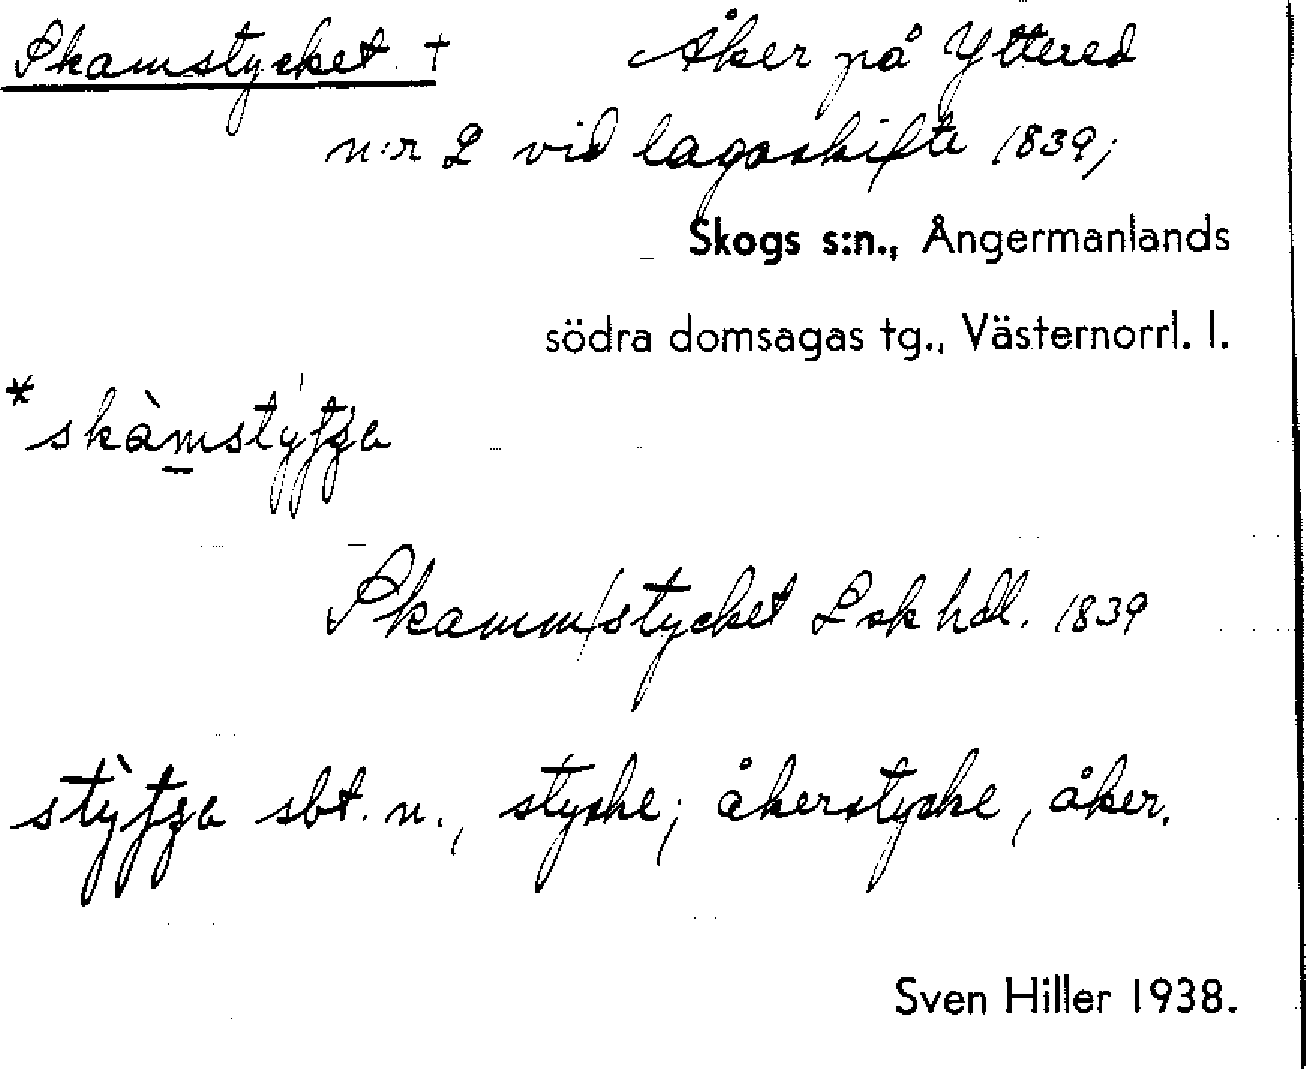 Skamstycket † Åker på Yttered
n:r 2 vid lagaskifte 1839;
Skogs s:n., Ångermanlands
södra domsagas tg., Västernorrl. l.
Skamm/stycket Lsk hdl. 1839
sbt. n., stycke; åkerstycke, åker.
Sven Hiller 1938.